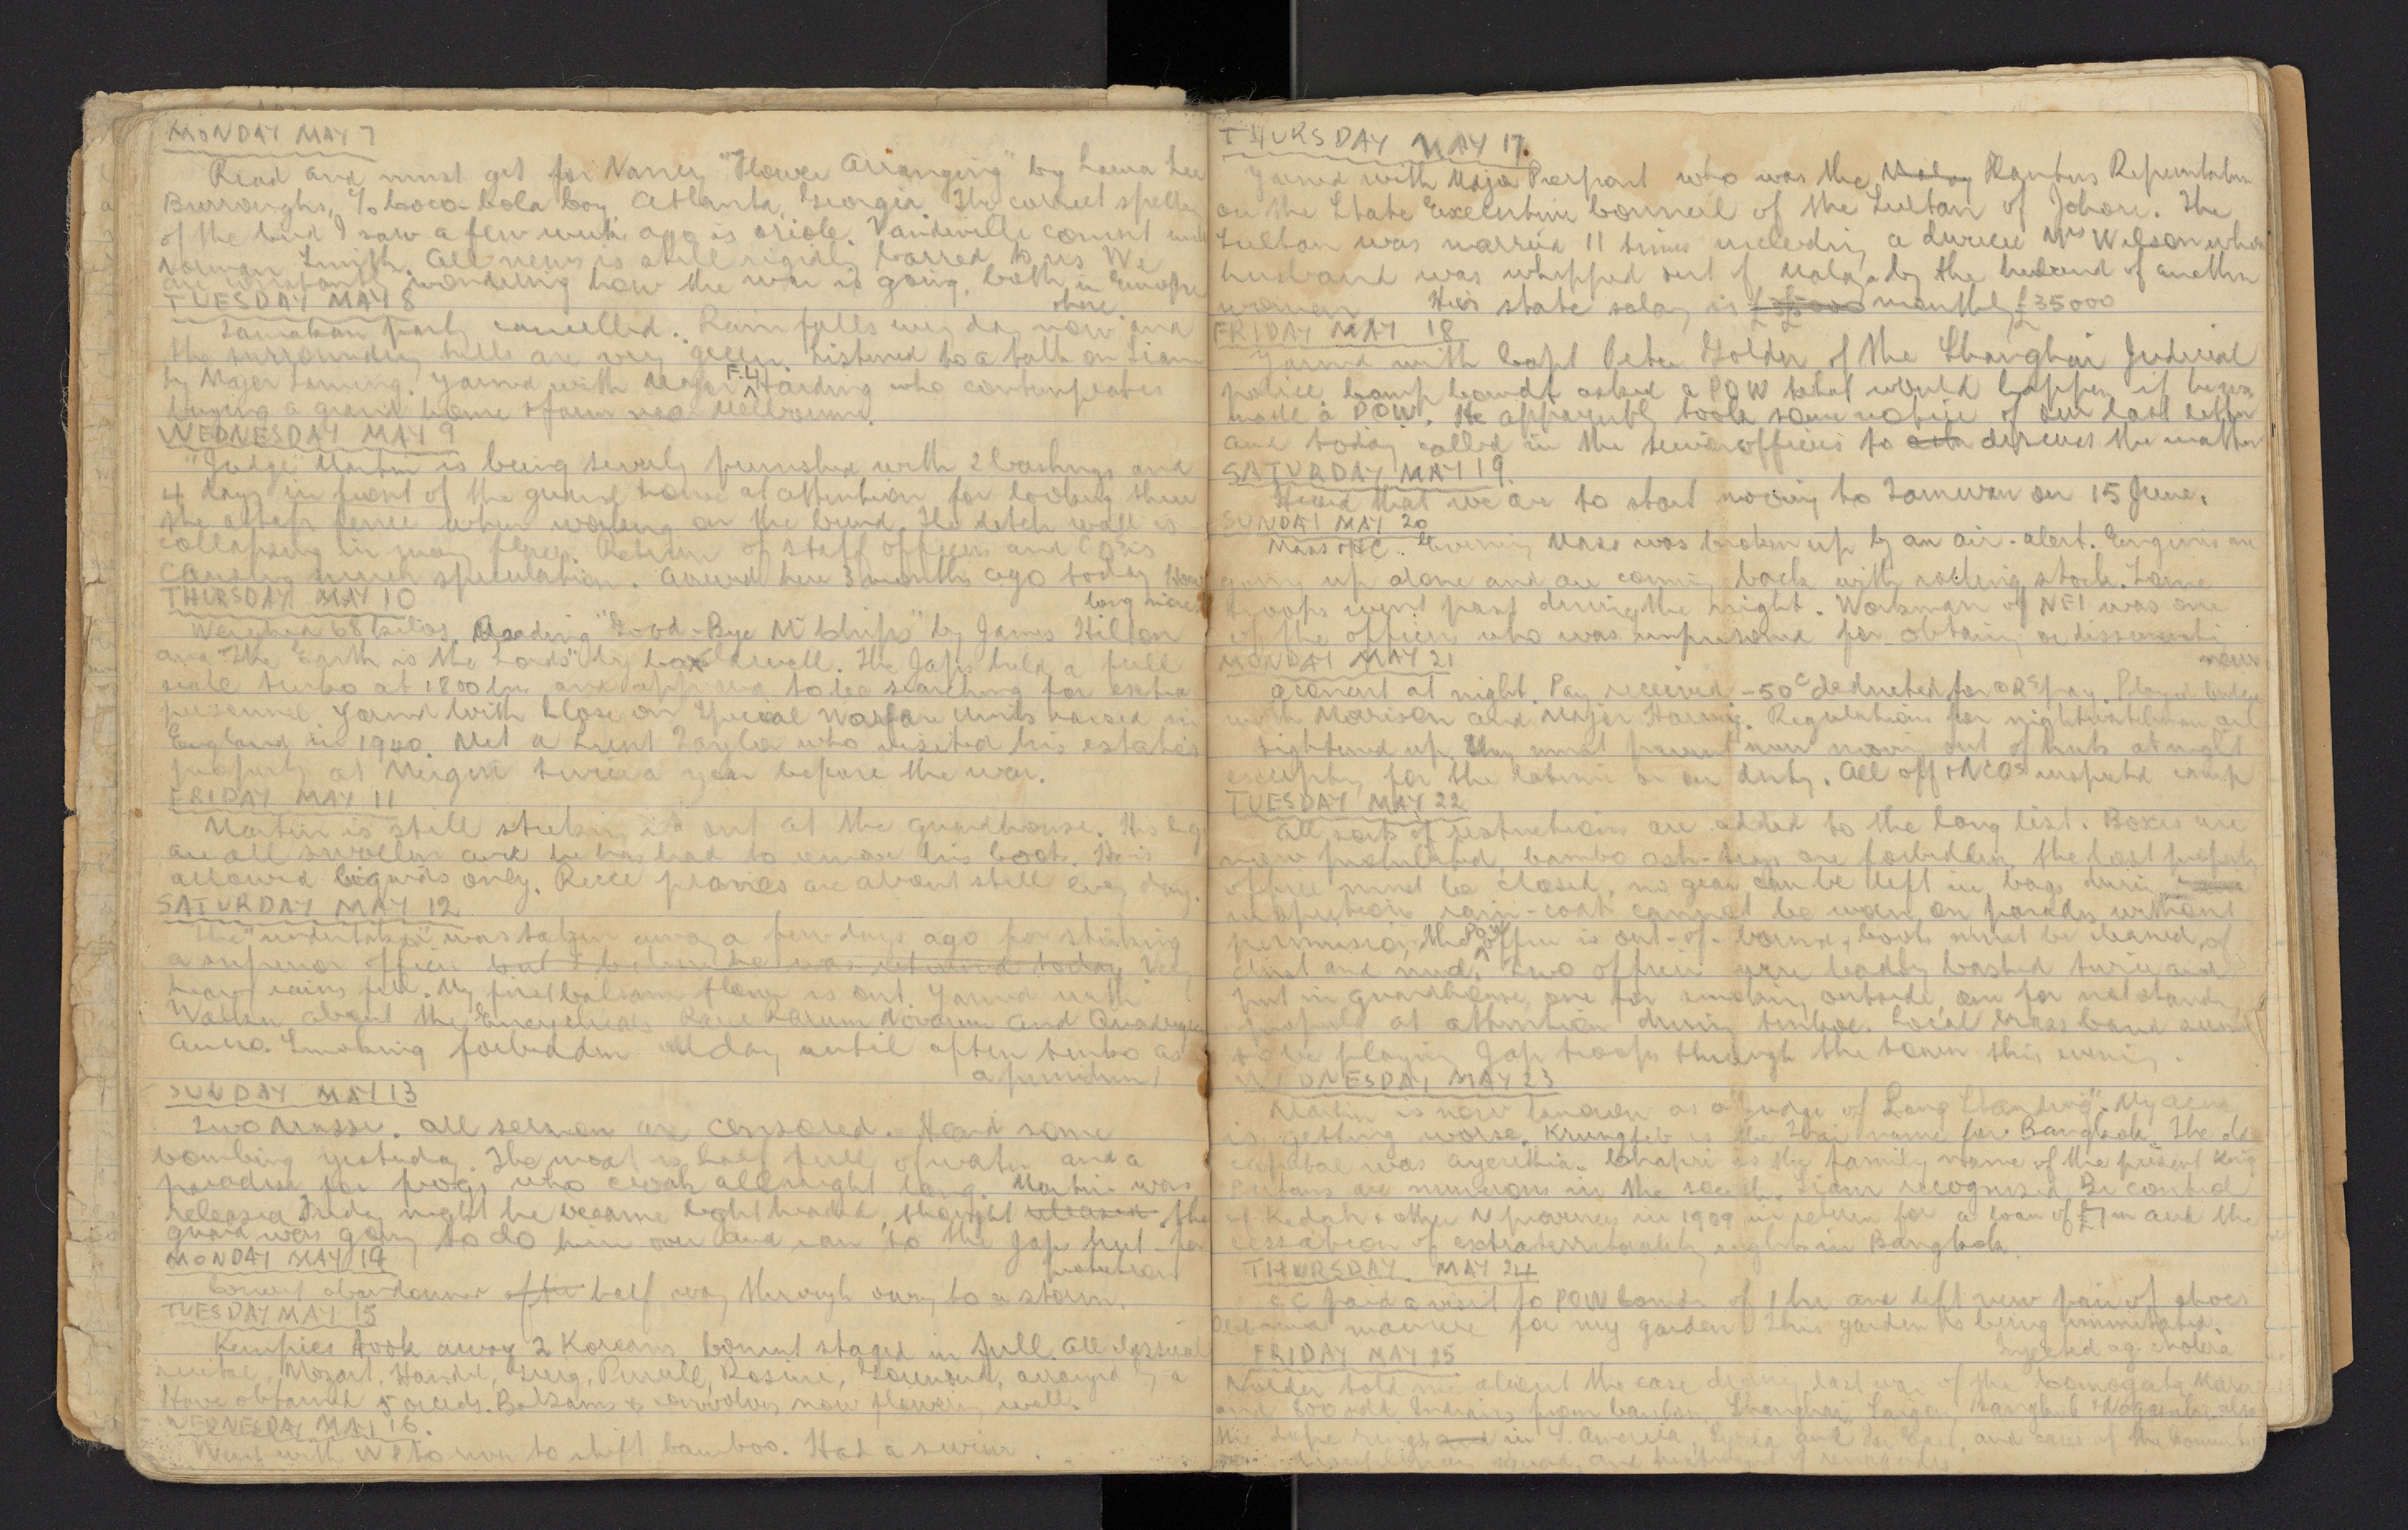 MONDAY MAY 7
Read and must get for Nancy "Flower Arranging" by Laura Lee
Burroughs, c/o Coco-Cola Coy Atlanta, Georgia. The correct spelling
of the bird I saw a few weeks ago is oriole. Vaudeville concert
Norman Smith. All news is still rigidly barred to us. We
are constantly wondering how the war is going, both in Europe
TUESDAY MAY 8
Tamakan party cancelled. Rain falls every day now and
the surrounding hills are very green. Listened to a talk on Siam
by Major Laming. Yarned with Major F.H. Harding who contemplates
buying a grand home & farm near Melbourne.
WEDNESDAY MAY 9
"Judge" Martin is being severely punished with 2 bashings and
4 days in front of the guard house at attention for looking thru
the attap fence when working on the bund. The ditch wall is
collapsing in many places. Return of staff officers and COs is
causing much speculation. Arrived here 3 months ago today. How
long more
THURSDAY MAY 10
Weighed 68 kilos. Reading "Good-Bye Mr Chips" by James Hilton
and "The Earth is the Lords" by Caldwell. The Japs held a full
scale tenko at 1800 hrs and appeared to be searching for extra
personnel. Yarned with Close on Special Warfare Units raised in
England in 1940. Met a Lieut Taylor who visited his estate's
property at Mergui twice a year before the war.
FRIDAY MAY 11
Martin is still sticking it out at the guardhouse. His legs
are all swollen and he has had to remove his boots. He is
allowed liquids only. Recce planes are about still every day.
SATURDAY MAY 12
The "undertaker" was taken away a few days ago for striking
a superior officer but I believe he was returned today. Very
heavy rains fell. My first balsam flower is out. Yarned with
Walker about the Encyclicals Rerum Novarum and Quadrages
Anno. Smoking forbidden all day until after tenko as
a punishment
SUNDAY MAY 13
Two Masses. All sermons are censored. Heard some
bombing yesterday. The moat is half full of water and a
paradise for frogs who croak all night long. Martin was
released Friday night he became light headed, thought released the
guard was going to do him over and ran to the Jap hut for
protection
MONDAY MAY 14
Concert abandoned after half way through owing to a storm.
TUESDAY MAY 15
Kempies took away 2 Koreans. Concert staged in full. All classical
recital, Mozart, Handel, Grieg, Purcell, Rosini, Gounod, arranged by a
Have obtained 5 orchids. Balsams & convolvus now flowering well.
WEDNESDAY MAY 16.
Went with WP to river to shift bamboo. Had a swim.
THURSDAY MAY 17.
Yarned with Major Pierpont who was the Malay Planters Representative
on the State Executive Council of the Sultan of Johore. The
Sultan was married 11 times including a divorcee Mrs Wilson whose
husband was whipped out of Malaya by the husband of another
woman. His state salary is £35000 monthly £35000
FRIDAY MAY 18
Yarned with Capt Peter Golder of the Shanghai Judicial
police. Camp Comdt asked a POW what would happen if he was
made a POW. He apparently took some notice of our last letter
and today called in the senior officers to discuss the matter
SATURDAY MAY 19
Heard that we are to start moving to Tamuan on 15 June.
SUNDAY MAY 20
Mass & HC. Evening Mass was broken up by an air-alert. Engines are
going up alone and are coming back with rolling stock. Some
troops went past during the night. Workman of NEI was one
of the officers who was imprisoned for obtaining or disseminating
news
MONDAY MAY 21
Concert at night. Pay received - 50c deducted for ORs pay. Played bridge
with Morison and Major Harris. Regulations for nightwatchman are
tightened up. They must prevent men moving out of huts at night
excepting for the latrine or on duty. All off & NCOs inspected camp
TUESDAY MAY 22
All sorts of restrictions are added to the long list. Boxes are
now prohibited, bamboo ash-trays are forbidden, the lost property
office must be closed, no gear can be left in bags during
inspections, rain-coats cannot be worn on parades without
permission, the POW office is out-of-bounds, boots must be cleaned of
dust and mud. Two officers were badly bashed twice and
put in guardhouse, one for smoking outside, one for not standing
properly at attention during tenko. Local brass band seems
to be playing Jap troops through the town this evening.
WEDNESDAY MAY 23
Martin is now known as a "Judge of Long Standing". My acne
is getting worse. Krungteb is the Thai name for Bangkok. The old
capital was Ayuthia. Chakri is the family name of the present King
in the south. Siam recognised Br control
of Kedah & other N provinces in 1909 in return for a loan of £ m and the
cessation of extraterritoriality rights in Bangkok.
THURSDAY MAY 24
GC paid a visit to POW Comdr of 1 hr and left new pair of shoes
Obtained manure for my garden. This garden is being immitated.
Injected ag. cholera
FRIDAY MAY 25
Nolder told me about the case during last war of the Komagata Maru
and 800 odd Indians from Canton, Shanghai, Saigon, Bangkok
the dope rings in S. America, Syria and Far East, and cases of the
squad, and treatment of renegades